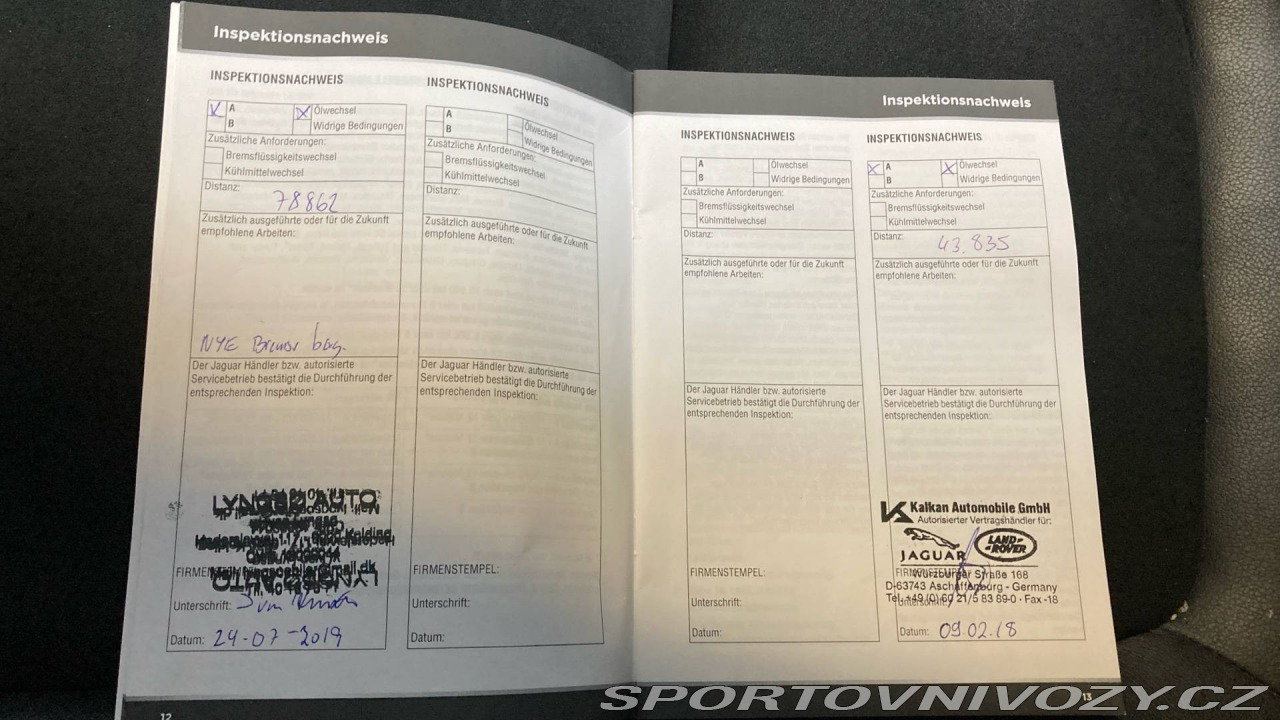 Inspektionsnachweis
INSPEKTIONSNACHWEIS
A
Ölwechsel
B
Widrige Bedingungen
Zusätzliche Anforderungen:
Bremsflüssigkeitswechsel
Kühlmittelwechsel
Distanz:
78862
Zusätzlich ausgeführte oder für die Zukunft
empfohlene Arbeiten:
NYE
Der Jaguar Händler bzw. autorisierte
Servicebetrieb bestätigt die Durchführung der
entsprechenden Inspektion:
LYNGBO AUTO
Kolding
Unterschrift:
Datum: 24-07-2019
12
INSPEKTIONSNACHWEIS
A
Ölwechsel
B
Widrige Bedingungen
Zusätzliche Anforderungen:
Bremsflüssigkeitswechsel
Kühlmittelwechsel
Distanz:
Zusätzlich ausgeführte oder für die Zukunft
empfohlene Arbeiten:
Der Jaguar Händler bzw. autorisierte
Servicebetrieb bestätigt die Durchführung der
entsprechenden Inspektion:
FIRMENSTEMPEL:
Unterschrift:
Datum:
Inspektionsnachweis
INSPEKTIONSNACHWEIS
A
Ölwechsel
B
Widrige Bedingungen
Zusätzliche Anforderungen:
Bremsflüssigkeitswechsel
Kühlmittelwechsel
Distanz:
Zusätzlich ausgeführte oder für die Zukunft
empfohlene Arbeiten:
Der Jaguar Händler bzw. autorisierte
Servicebetrieb bestätigt die Durchführung der
entsprechenden Inspektion:
FIRMENSTEMPEL:
Unterschrift:
Datum:
INSPEKTIONSNACHWEIS
A
Ölwechsel
B
Widrige Bedingungen
Zusätzliche Anforderungen:
Bremsflüssigkeitswechsel
Kühlmittelwechsel
Distanz:
43.835
Zusätzlich ausgeführte oder für die Zukunft
empfohlene Arbeiten:
Der Jaguar Händler bzw. autorisierte
Servicebetrieb bestätigt die Durchführung der
entsprechenden Inspektion:
Kalkan Automobile GmbH
Autorisierter Vertragshändler für:
JAGUAR
LAND-ROVER
Würzburger Straße 168
D-63743 Aschaffenburg - Germany
Tel. +49 (0) 60 21/5 83 89-0 · Fax -18
Datum: 09.02.18
13
SPORTOVNIVOZY.CZ